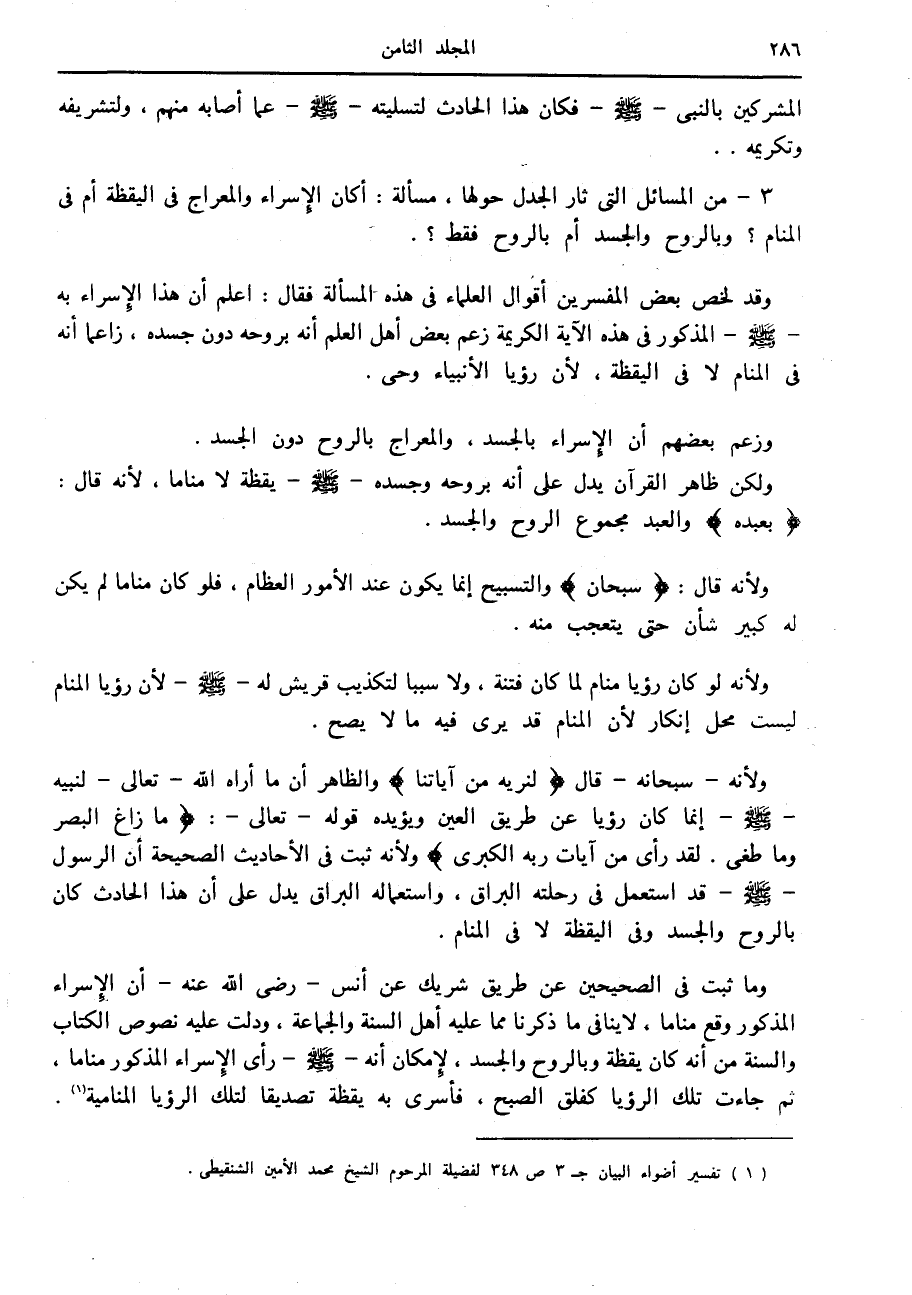 ٢٨٦ المجلد الثامن
المشركين بالنبى – ﷺ – فكان هذا الحادث لتسليته – ﷺ – عما أصابه منهم ، ولتشريفه
وتكريمه . .
٣ – من المسائل التى ثار الجدل حولها ، مسألة : أكان الإسراء والمعراج فى اليقظة أم فى
المنام ؟ وبالروح والجسد أم بالروح فقط ؟ .
وقد لخص بعض المفسرين أقوال العلماء فى هذه المسألة فقال : اعلم أن هذا الإسراء به
– ﷺ – المذكور فى هذه الآية الكريمة زعم بعض أهل العلم أنه بروحه دون جسده ، زاعما أنه
فى المنام لا فى اليقظة ، لأن رؤيا الأنبياء وحى .
وزعم بعضهم أن الإسراء بالجسد ، والمعراج بالروح دون الجسد .
ولكن ظاهر القرآن يدل على أنه بروحه وجسده – ﷺ – يقظة لا مناما ، لأنه قال :
﴿ بعبده ﴾ والعبد مجموع الروح والجسد .
ولأنه قال : ﴿ سبحان ﴾ والتسبيح إنما يكون عند الأمور العظام ، فلو كان مناما لم يكن
له كبير شأن حتى يتعجب منه .
ولأنه لو كان رؤيا منام لما كان فتنة ، ولا سببا لتكذيب قريش له – ﷺ – لأن رؤيا المنام
ليست محل إنكار لأن المنام قد يرى فيه ما لا يصح .
ولأنه – سبحانه – قال ﴿ لنريه من آياتنا ﴾ والظاهر أن ما أراه الله – تعالى – لنبيه
– ﷺ – إنما كان رؤيا عن طريق العين ويؤيده قوله – تعالى – : ﴿ ما زاغ البصر
وما طغى . لقد رأى من آيات ربه الكبرى ﴾ ولأنه ثبت فى الأحاديث الصحيحة أن الرسول
– ﷺ – قد استعمل فى رحلته البراق ، واستعماله البراق يدل على أن هذا الحادث كان
بالروح والجسد وفى اليقظة لا فى المنام .
وما ثبت فى الصحيحين عن طريق شريك عن أنس – رضى الله عنه – أن الإسراء
المذكور وقع مناما ، لاينافى ما ذكرنا مما عليه أهل السنة والجماعة ، ودلت عليه نصوص الكتاب
والسنة من أنه كان يقظة وبالروح والجسد ، لإمكان أنه – ﷺ – رأى الإسراء المذكور مناما ،
ثم جاءت تلك الرؤيا كفلق الصبح ، فأسرى به يقظة تصديقا لتلك الرؤيا المنامية(١) .
( ١ ) تفسير أضواء البيان جـ ٣ ص ٣٤٨ لفضيلة المرحوم الشيخ محمد الأمين الشنقيطى .